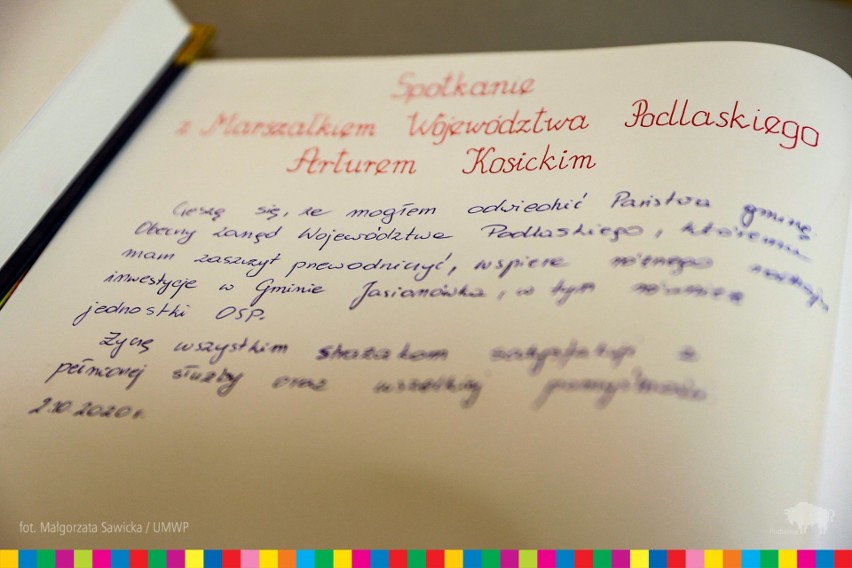 Spotkanie
z Marszałkiem Województwa Podlaskiego
Arturem Kosickim
Cieszę się, że mogłem odwiedzić Państwa gminę
Obecny zarząd Województwa Podlaskiego, któremu
mam zaszczyt przewodniczyć, wspiera różnego rodzaju
inwestycje w Gminie Jasionówka, w tym również
jednostki OSP.
Życzę wszystkim strażakom satysfakcji z
pełnionej służby oraz wszelkiej pomyślności
2.10.2020 r.
fot. Małgorzata Sawicka / UMWP